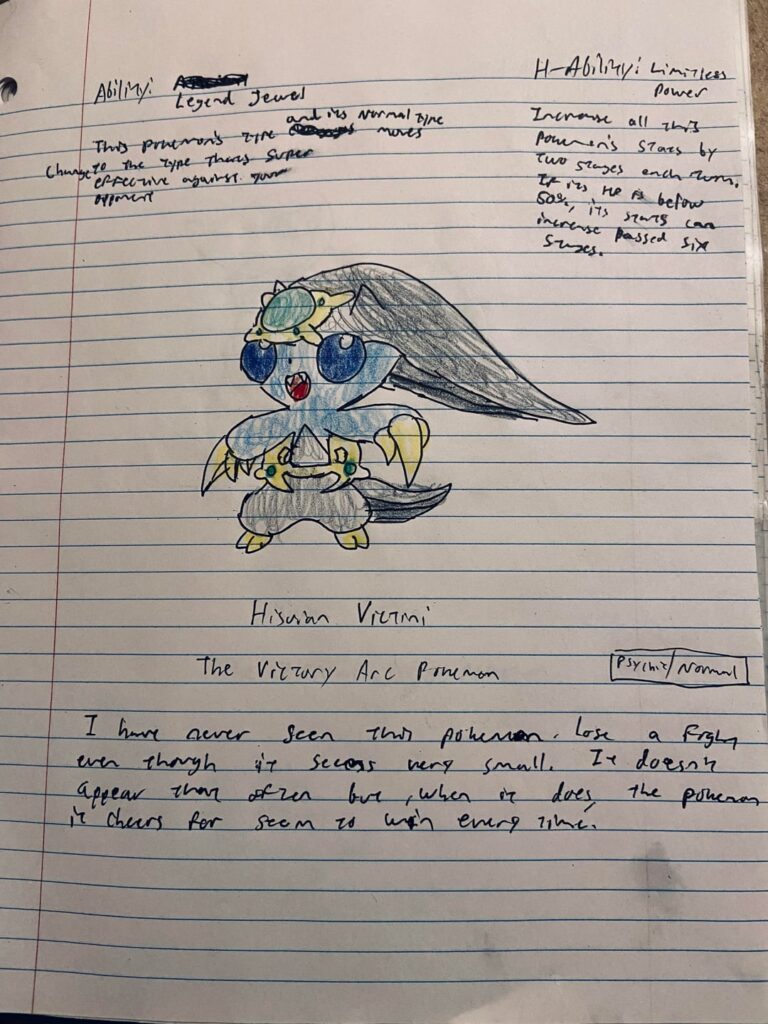 Ability:
Legend Jewel
and its Normal Type
This pokemon's type moves
Change to the type thats super
effective against your
opponent
H-Ability: Limitless
Power
Increase all this
Pokemon's stats by
two stages each turn.
If its HP is below
50%, its stats can
increase passed six
stages.
Hisuian Victini
The Victory Arc Pokemon
Psychic/Normal
I have never seen this pokemon. Lose a fight
even though it seems very small. It doesn't
appear that often but, when it does, the pokemon
it cheers for seem to win every time.